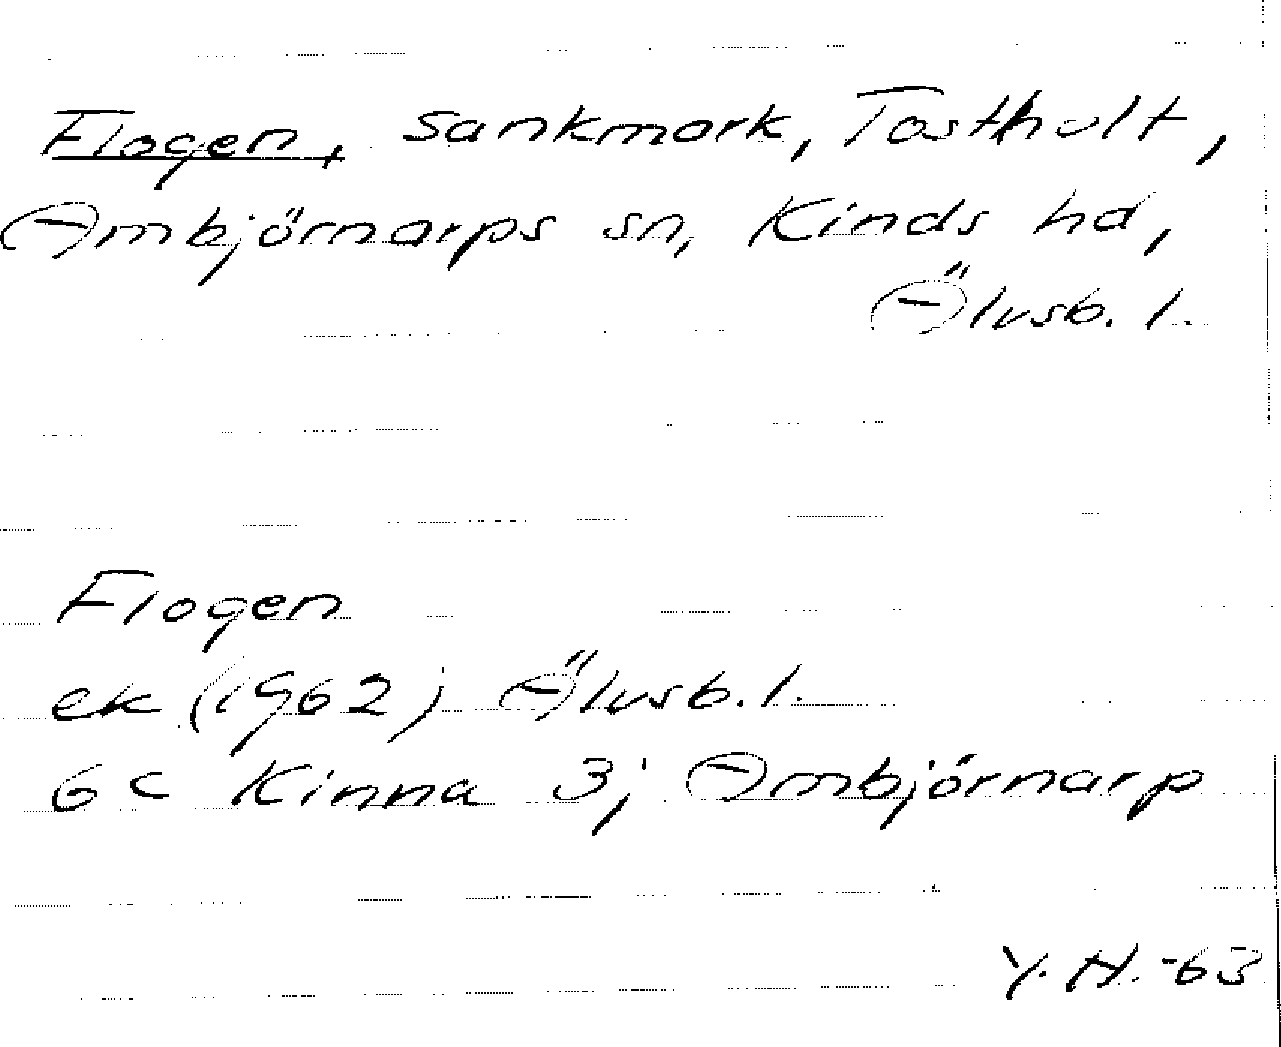 Flogen, sankmark, Tosthult,
Ambjörnarps sn, Kinds hd,
Älvsb. l.
Flogen
ek (1962); Älvsb. l.
6 C Kinna 3j Ambjörnarp
Y. H. -63